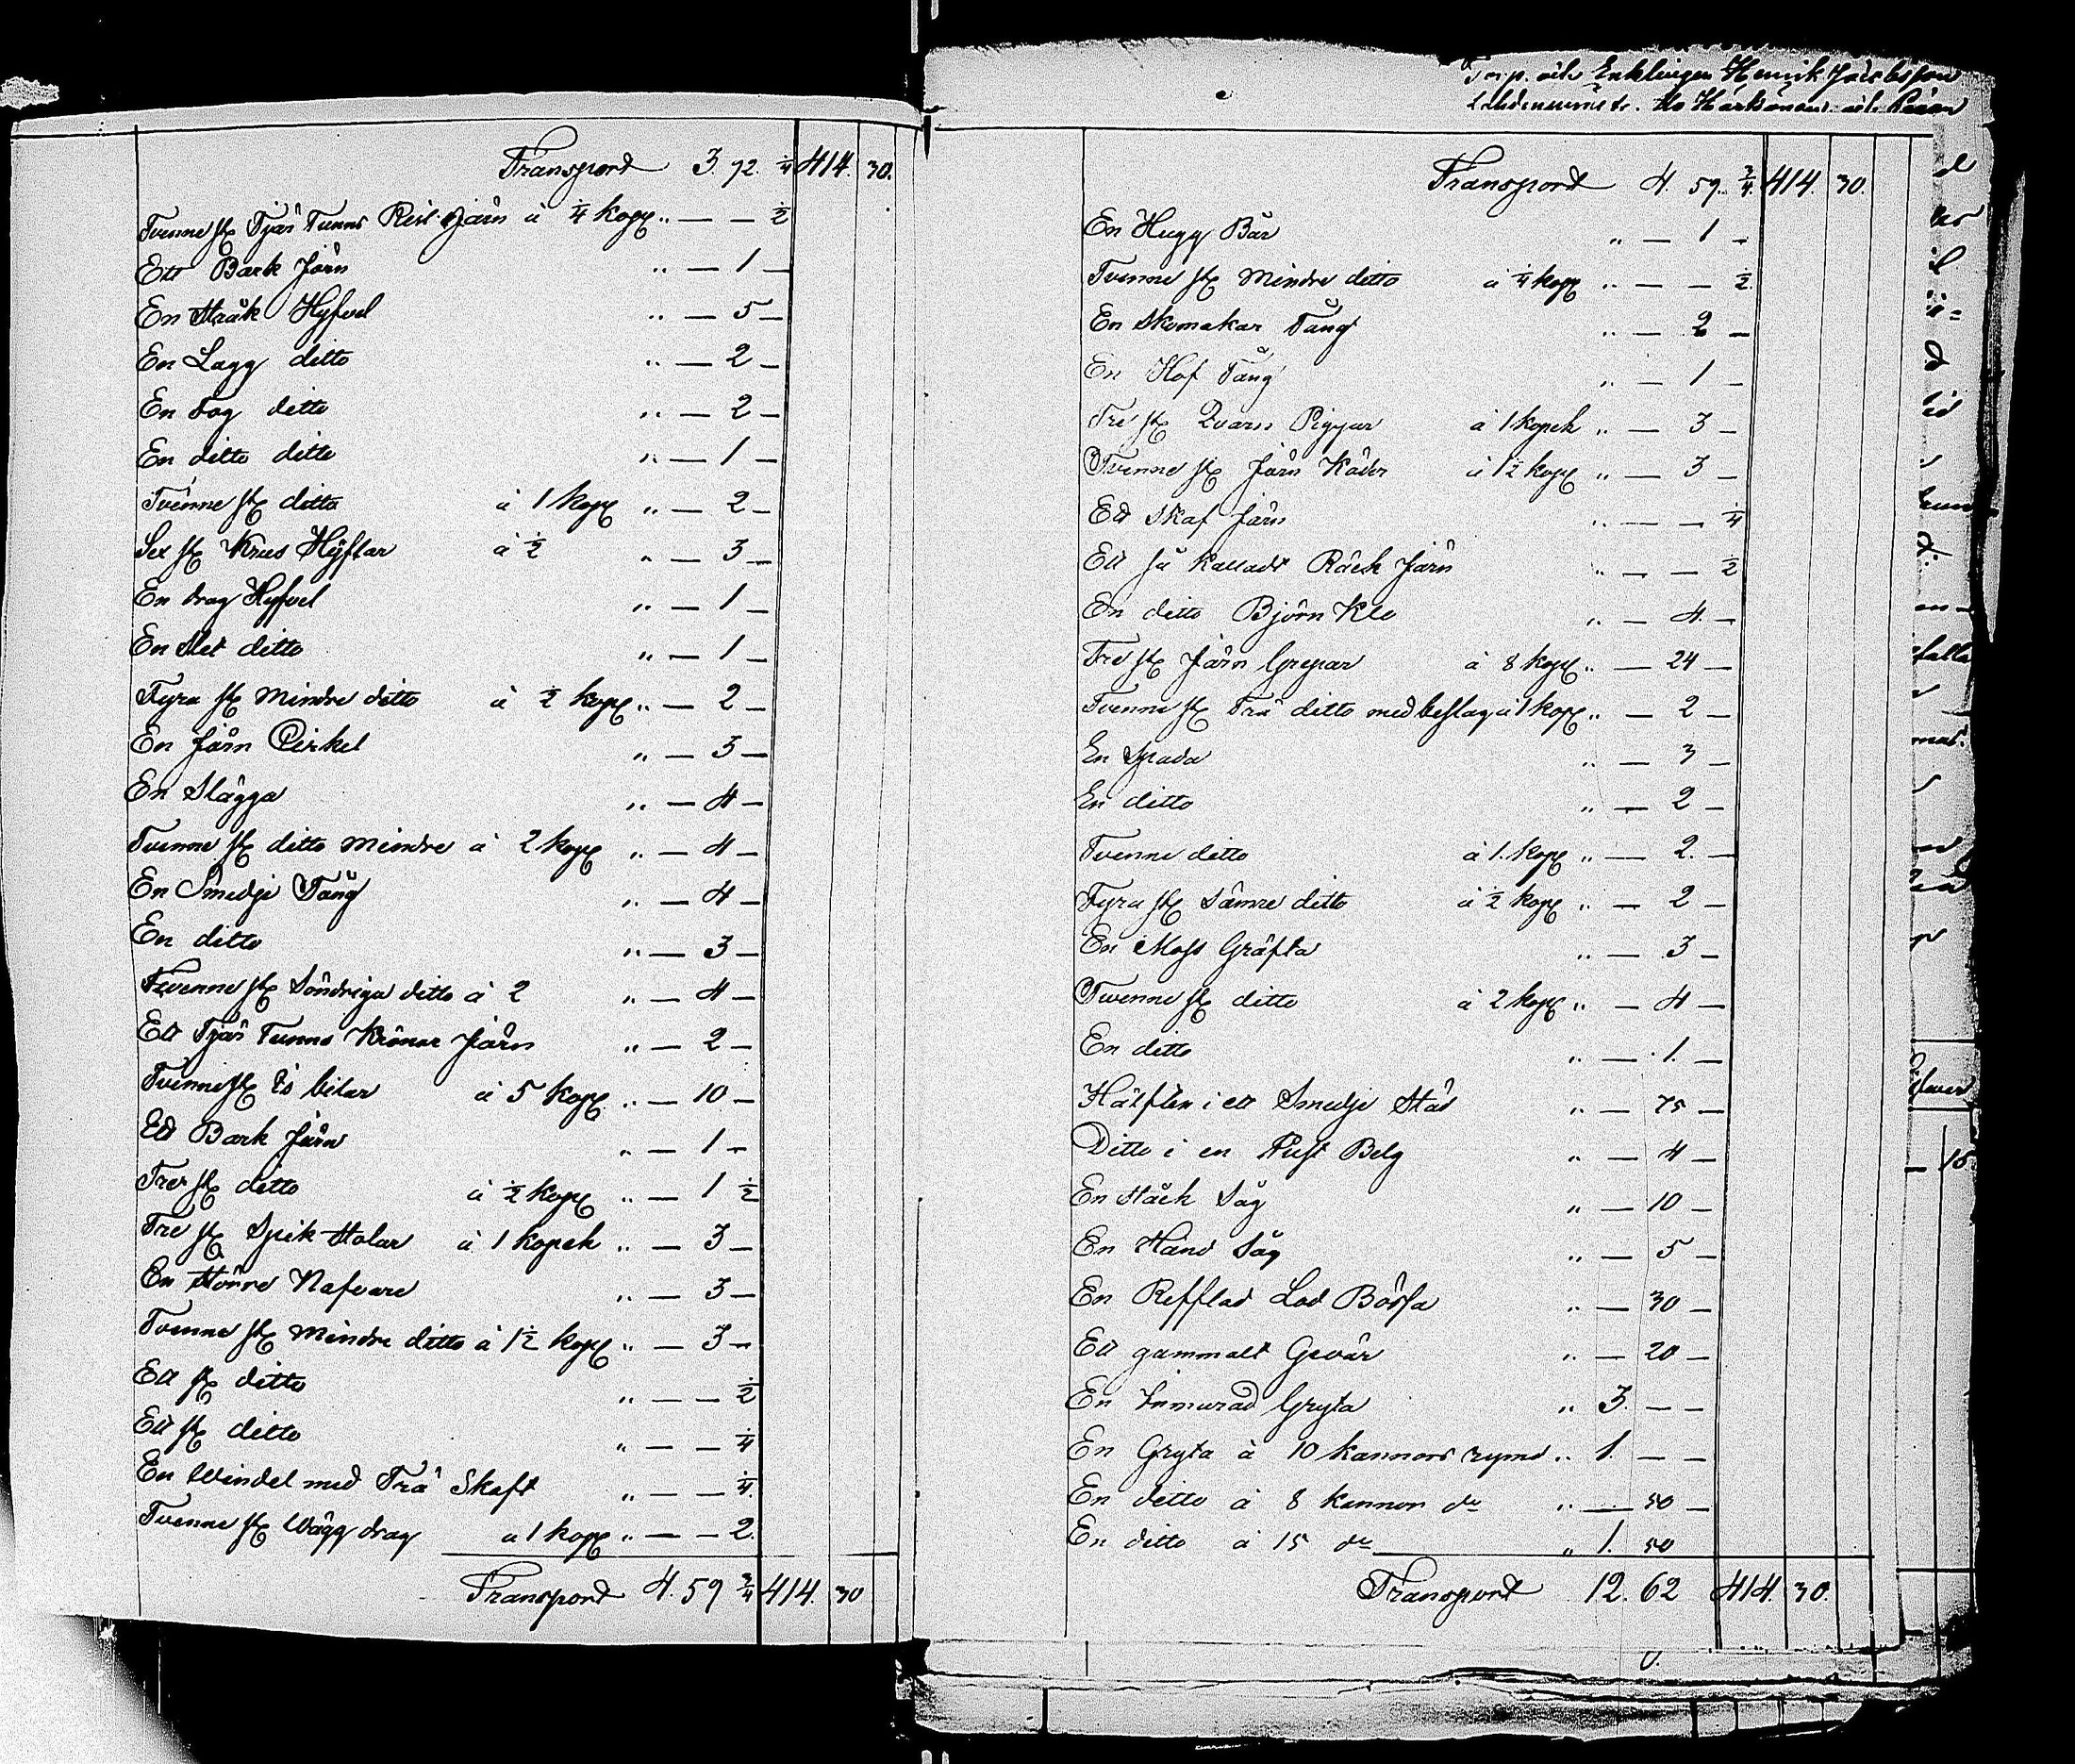 Transport 3. 92. 1/4 414. 30.
Tvenne st Tjär Tunns Reit Järn à 1/4 kopp „ — — 1/2
Ett Bark Järn „ — 1 —
En Stråk Hyfvel „ — 5 —
En Lagg ditto „ — 2 —
En Fog ditto „ — 2 —
En ditto ditto „ — 1 —
Tvenne st ditto à 1 kop „ — 2 —
Sex st Krus Hyflar à 1/2 „ — 3 —
En drag Hyfvel „ — 1 —
En Slet ditto „ — 1 —
Fyra st Mindre ditto à 1/2 kop „ — 2 —
En Järn Cirkel „ — 3 —
En Slägga „ — 4 —
Tvenne st ditto mindre à 2 kop „ — 4 —
En Smedje Tång „ — 4 —
En ditto „ — 3 —
Tvenne st Söndriga ditto à 2 „ — 4 —
Ett Tjär Tunns Krönar Järn „ — 2 —
Tvenne st Is bilar à 5 kop „ — 10 —
Ett Bark Järn „ — 1 —
Tre st ditto à 1/2 kop „ — 1 1/2
Tre st Spik Stolar à 1 kopek „ — 3 —
En Större Nafvare „ — 3 —
Tvenne st mindre ditto à 1 1/2 kop „ — 3 —
Ett st ditto „ — — 1/2
Ett st ditto „ — — 1/4
En Windel med Trä Skaft „ — — 1/4.
Tvenne st Wägg drag à 1 kop „ — — 2.
Transport 4. 59 3/4 414. 30
Enklingen Henrik
Transport 4. 59. 3/4. 414. 30.
En Hugg Bär „ — 1 —
Tvenne st Mindre ditto à 1/4 kop „ — — 1/2.
En Skomakar Tång „ — 2 —
En Hof Tång „ — 1 —
Tre st Qvarn Piggar à 1 kopek „ — 3 —
Tvenne st Järn Käder à 1 1/2 kop „ — 3 —
Ett Skaf Järn „ — — 1/4
Ett så kalladt Räck Järn „ — — 1/2
En ditto Björn Klo „ — 4. —
Tre st Järn Grepar à 8 kop „ — 24 —
Tvenne st Trä ditto med beslag à 1 kop „ — 2 —
En Spada „ — 3 —
En ditto „ — 2 —
Tvenne ditto à 1. kop „ — 2. —
Fyra st Sämre ditto à 1/2 kop „ — 2 —
En Moss Gräfta „ — 3 —
Tvenne st ditto à 2 kop „ — 4 —
En ditto „ — 1. —
Hälften i ett Smedje Städ „ — 75 —
Ditto i en Pust Belg „ — 4 —
En Stäck Såg „ — 10 —
En Hand Såg „ — 5 —
En Refflad Lod Bössa „ — 30 —
Ett gammalt Gevär „ — 20 —
En Inmurad Gryta „ 3. — —
En Gryta à 10 kannors rymd „ 1. — —
En ditto à 8 kannor do „ — 50 —
En ditto à 15 do „ 1. 50
Transport 12. 62 414. 30.